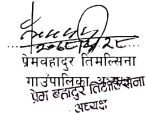 २०८१/५/२८
प्रेमबहादुर तिमल्सिना
गाउँपालिका अध्यक्ष
प्रेम बहादुर तिमल्सिना
अध्यक्ष